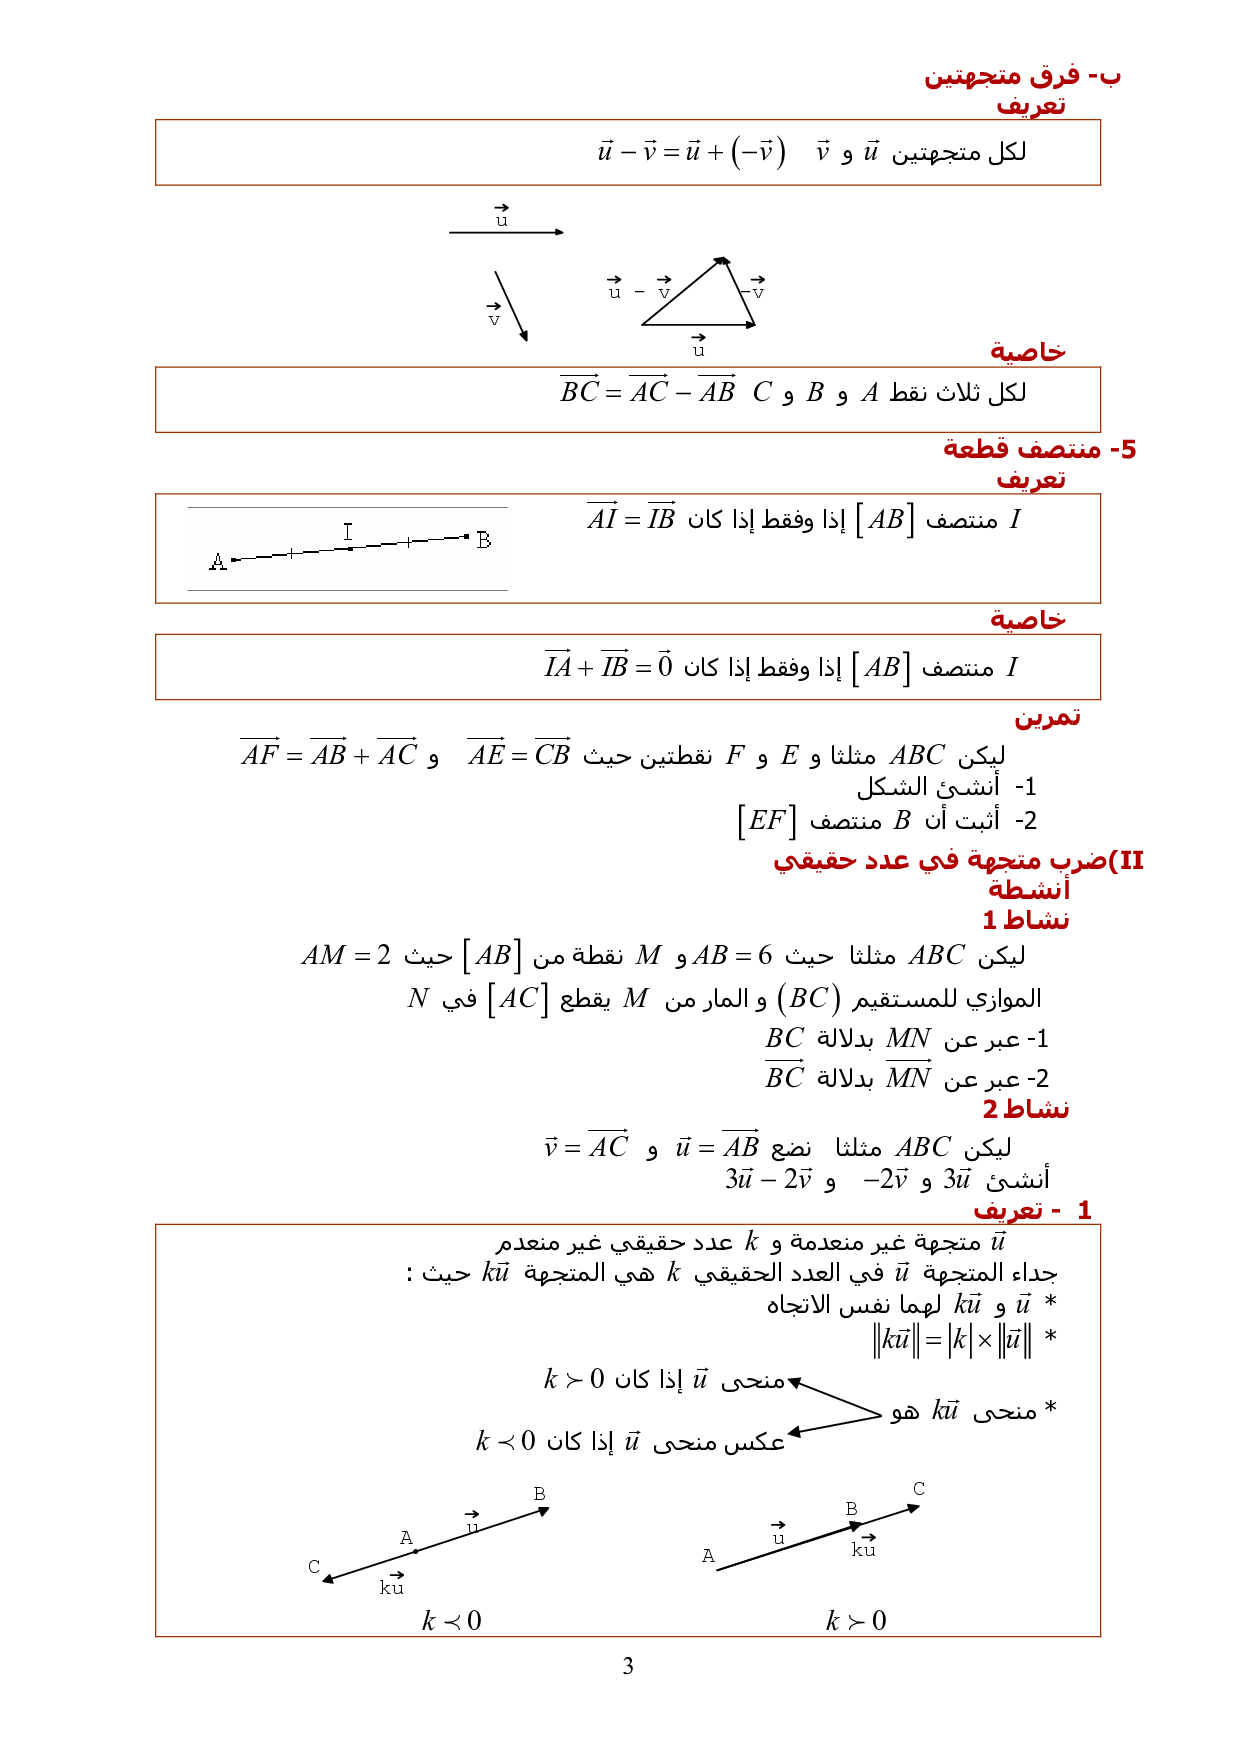 ب- فرق متجهتين
تعريف
لكل متجهتين $\vec{u}$ و $\vec{v}$ $\vec{u}-\vec{v}=\vec{u}+(-\vec{v})$
$\vec{u}$
$\vec{u}-\vec{v}$ $-\vec{v}$
$\vec{v}$
$\vec{u}$
خاصية
لكل ثلاث نقط $A$ و $B$ و $C$ $\overrightarrow{BC}=\overrightarrow{AC}-\overrightarrow{AB}$
5- منتصف قطعة
تعريف
$I$ منتصف $[AB]$ إذا وفقط إذا كان $\overrightarrow{AI}=\overrightarrow{IB}$
A I B
خاصية
$I$ منتصف $[AB]$ إذا وفقط إذا كان $\overrightarrow{IA}+\overrightarrow{IB}=\vec{0}$
تمرين
ليكن $ABC$ مثلثا و $E$ و $F$ نقطتين حيث $\overrightarrow{AE}=\overrightarrow{CB}$ و $\overrightarrow{AF}=\overrightarrow{AB}+\overrightarrow{AC}$
1- أنشئ الشكل
2- أثبت أن $B$ منتصف $[EF]$
II)ضرب متجهة في عدد حقيقي
أنشطة
نشاط 1
ليكن $ABC$ مثلثا حيث $AB=6$ و $M$ نقطة من $[AB]$ حيث $AM=2$
الموازي للمستقيم $(BC)$ و المار من $M$ يقطع $[AC]$ في $N$
1- عبر عن $MN$ بدلالة $BC$
2- عبر عن $\overrightarrow{MN}$ بدلالة $\overrightarrow{BC}$
نشاط 2
ليكن $ABC$ مثلثا نضع $\vec{u}=\overrightarrow{AB}$ و $\vec{v}=\overrightarrow{AC}$
أنشئ $3\vec{u}$ و $-2\vec{v}$ و $3\vec{u}-2\vec{v}$
1 - تعريف
$\vec{u}$ متجهة غير منعدمة و $k$ عدد حقيقي غير منعدم
جداء المتجهة $\vec{u}$ في العدد الحقيقي $k$ هي المتجهة $k\vec{u}$ حيث :
* $\vec{u}$ و $k\vec{u}$ لهما نفس الاتجاه
* $\|k\vec{u}\|=|k|\times\|\vec{u}\|$
منحى $\vec{u}$ إذا كان $k \succ 0$
* منحى $k\vec{u}$ هو
عكس منحى $\vec{u}$ إذا كان $k \prec 0$
A B C $\vec{u}$ $k\vec{u}$
C A B $\vec{u}$ $k\vec{u}$
$k \succ 0$ $k \prec 0$
3